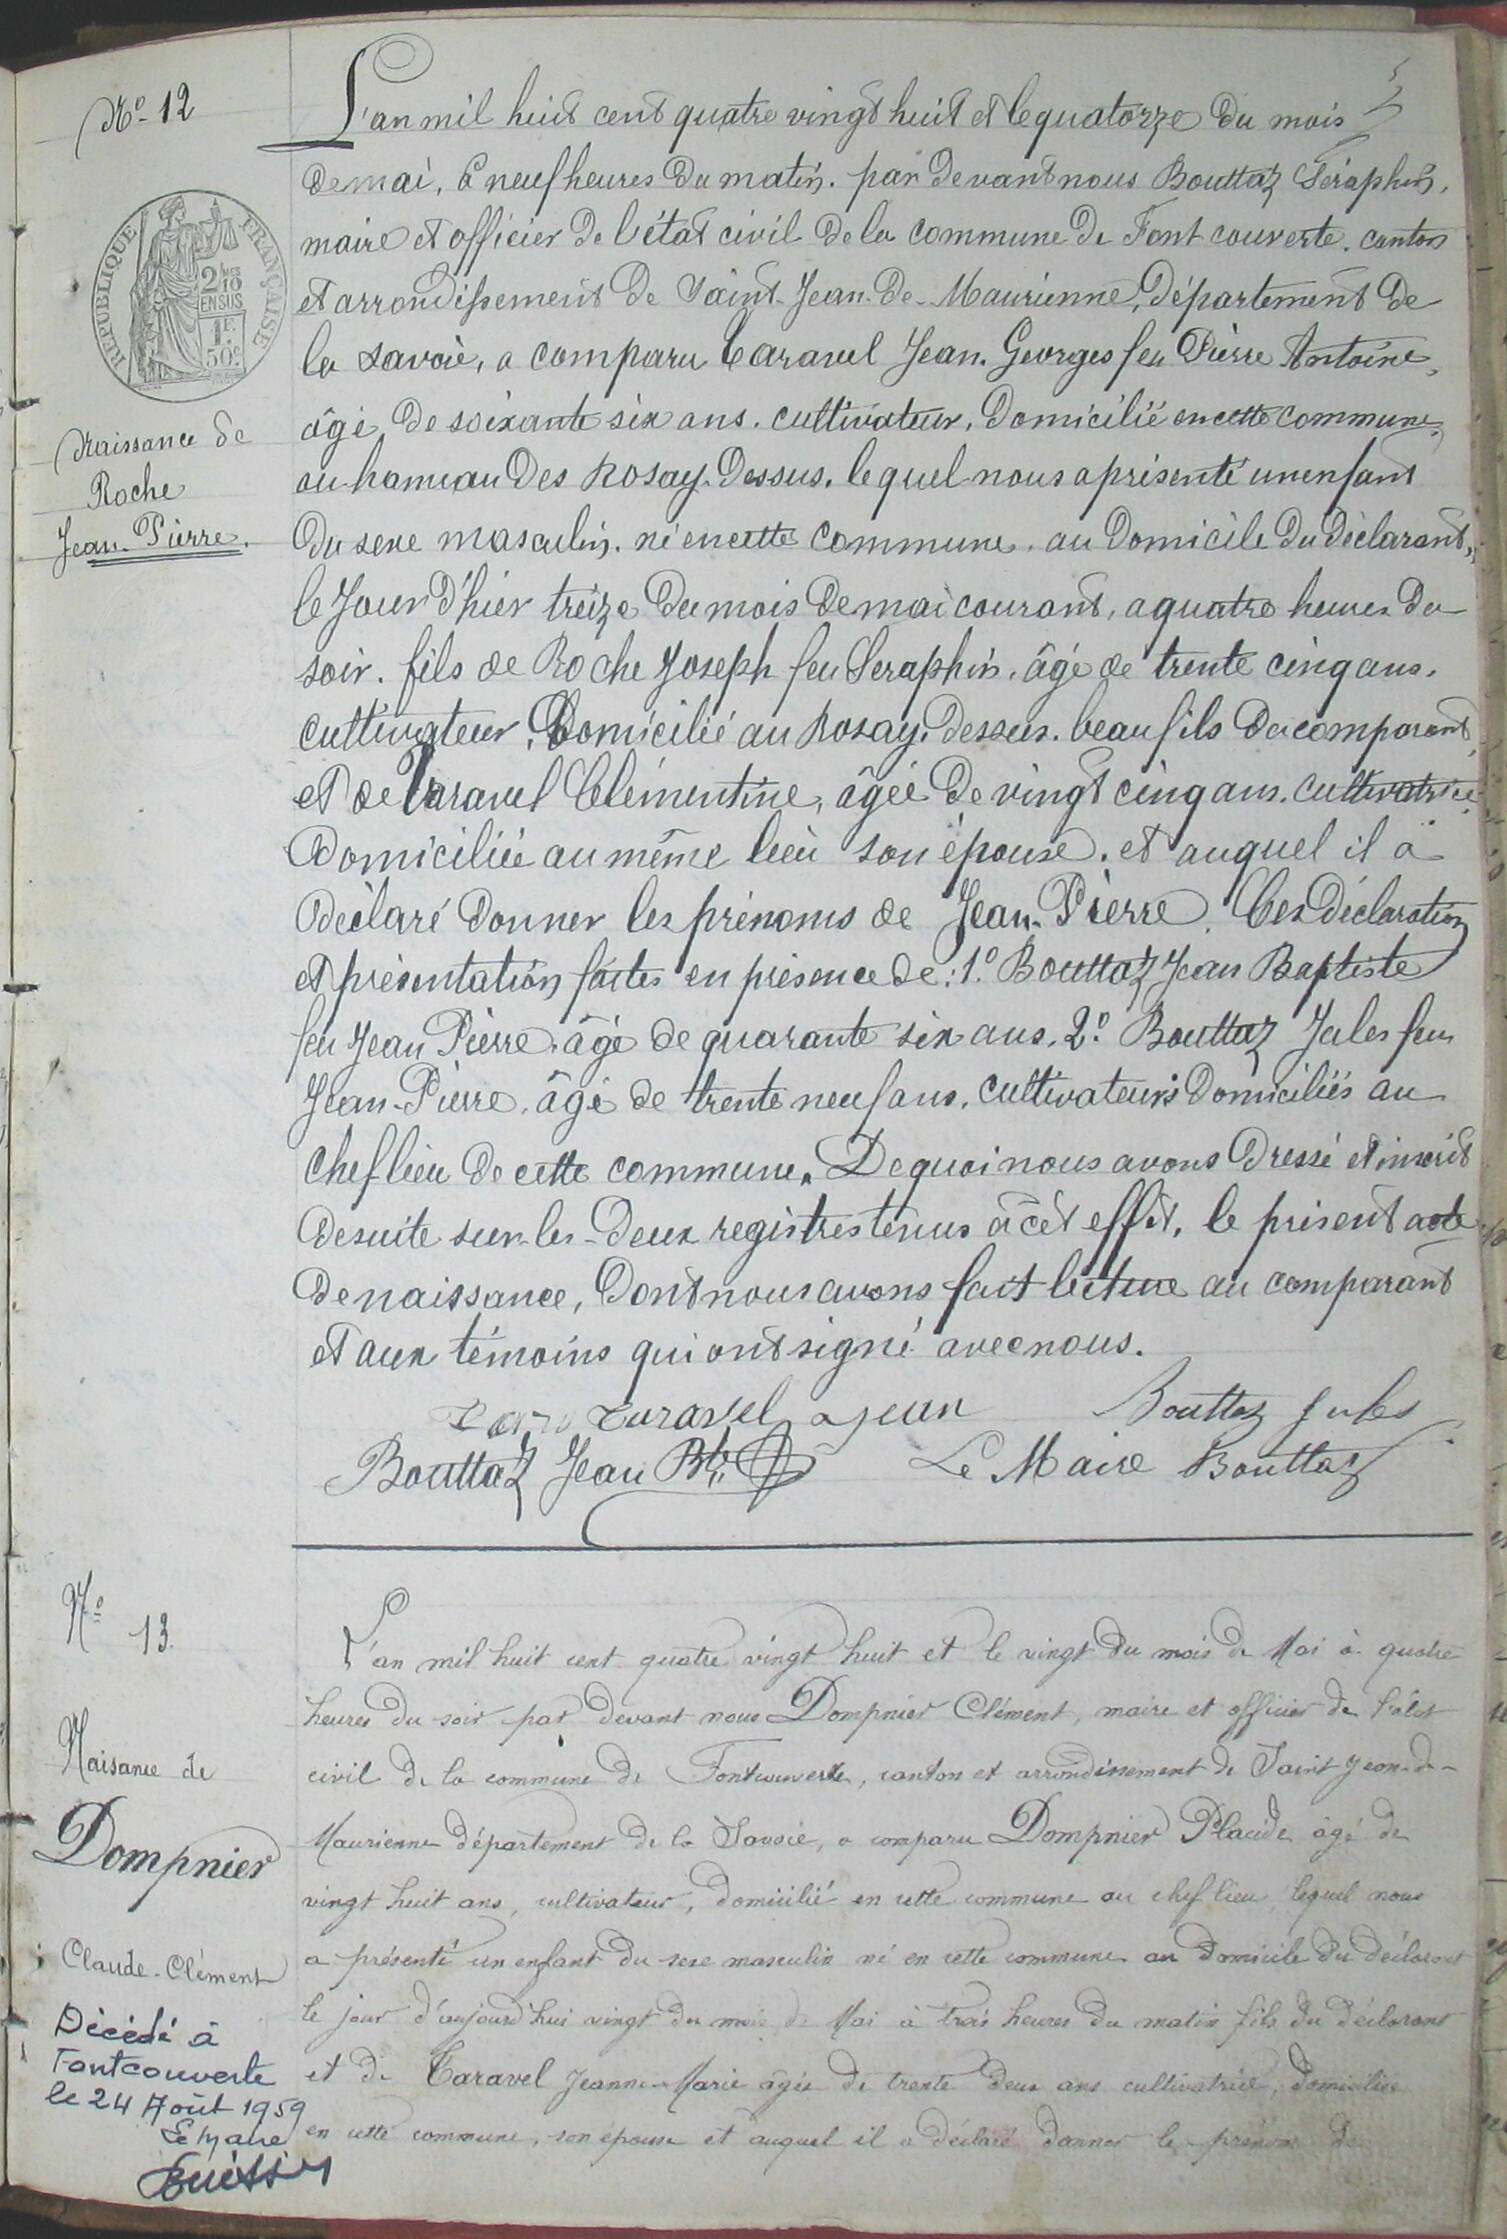 Nº 12
RÉPUBLIQUE FRANÇAISE
2/10
EN SUS
1F
50c
Naissance de
Roche
Jean-Pierre.
L'an mil huit cent quatre vingt huit et le quatorze du mois
de mai, à neuf heures du matin. par devant nous Bouttaz Séraphin,
maire et officier de l'état civil de la commune de Fontcouverte. canton
et arrondissement de Saint-Jean-de-Maurienne, département de
la Savoie, a comparu Taravel Jean-Georges feu Pierre Antoine,
âgé de soixante six ans. cultivateur, domicilié en cette commune,
au hameau des Rosay-Dessus. lequel nous a présenté un enfant
du sexe masculin. né en cette commune. au domicile du déclarant,
le jour d'hier treize du mois de mai courant, a quatre heures du
soir. fils de Roche Joseph feu Seraphin. âgé de trente cinq ans.
cultivateur, Domicilié au Rosay, dessus. beau fils du comparant,
et de Taravel Clémentine, âgée de vingt cinq ans. cultivatrice,
domiciliée au même lieu son épouse. et auquel il a
déclaré donner les prénoms de Jean-Pierre. Ces déclaration
et présentation faites en présence de: 1º Bouttaz Jean Baptiste
feu Jean Pierre. âgé de quarante six ans. 2º Bouttaz Jules feu
Jean-Pierre. âgé de trente neuf ans. cultivateurs domiciliés au
chef lieu de cette commune. De quoi nous avons dressé et inscrit
desuite sur les deux registres tenus à cet effet, le présent acte
de naissance, dont nous avons fait lecture au comparant
et aux témoins qui ont signé avec nous.
Taravel jean Bouttaz Jules
Bouttaz Jean Bte Le Maire Bouttaz
Nº 13.
Naisance de
Dompnier
Claude-Clément
Décédé à
Fontcouverte
le 24 Août 1959
Le Maire
L'an mil huit cent quatre vingt huit et le vingt du mois de Mai à quatre
heures du soir par devant nous Dompnier Clément, maire et officier de l'état
civil de la commune de Fontcouverte, canton et arrondissement de Saint Jean-de-
Maurienne département de la Savoie, a comparu Dompnier Placide âgé de
vingt huit ans, cultivateur, domicilié en cette commune au chef lieu, lequel nous
a présenté un enfant du sexe masculin né en cette commune au domicile du déclarant
le jour d'aujourd'hui vingt du mois de Mai à trois heures du matin fils du déclarant
et de Taravel Jeanne-Marie âgée de trente deux ans cultivatrice, domiciliée
en cette commune, son épouse et auquel il a déclaré donner les prénoms de